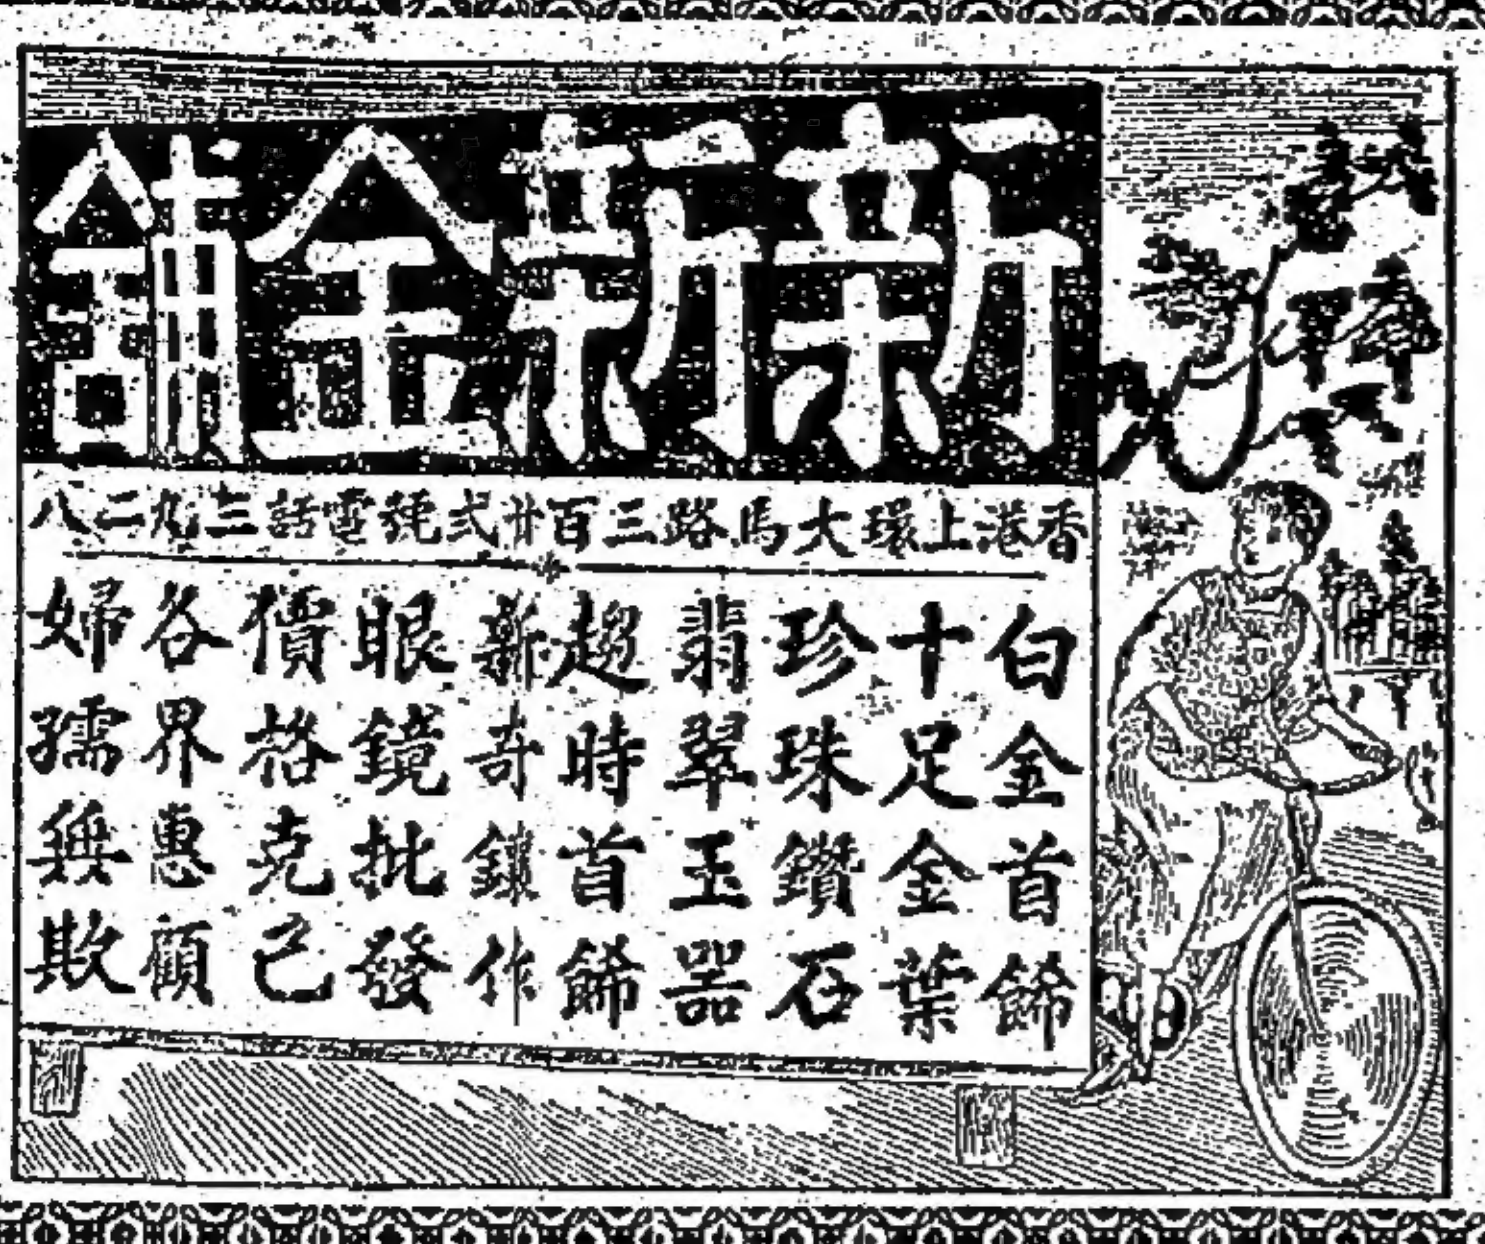 新新金舖
香港上環大馬路三百廿弍號電話三九二八
白金首飾
十足金葉
珍珠鑽石
翡翠玉器
超時首飾
新奇鑲作
眼鏡批發
價格克己
各界惠顧
婦孺無欺